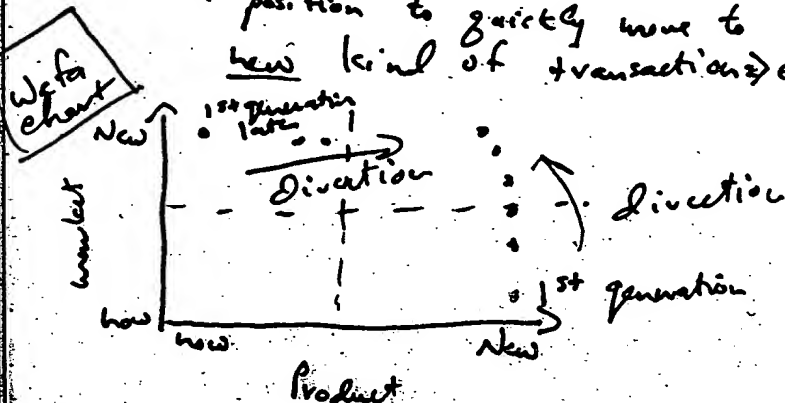 position to quickly move to
new kind of transactions ⇒
Wefa
chart
New
1st generation
later
direction
market
direction
1st generation
now
now
New
Product